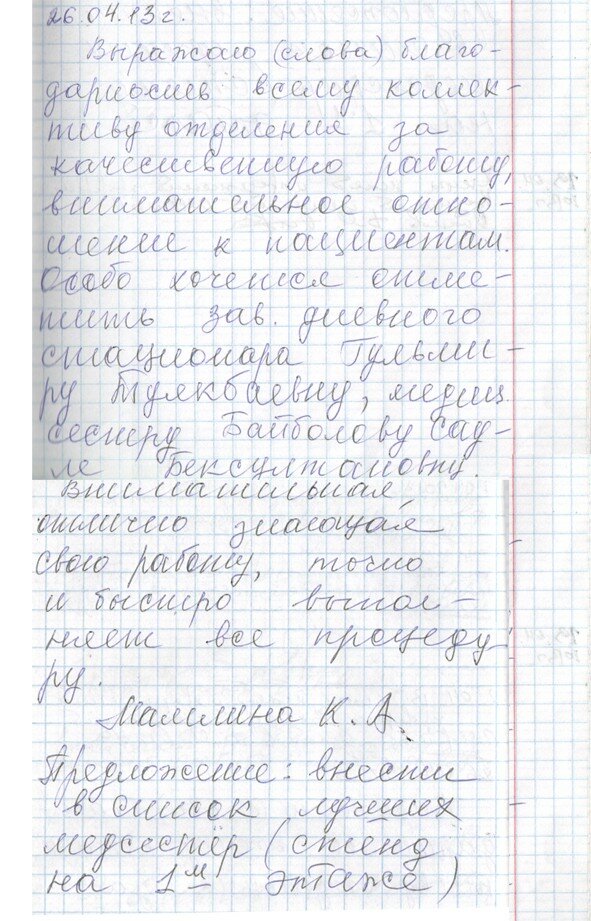 26.04.13г.
Выражаю (слова) благо-
дарность всему коллек-
тиву отделения за
качественную работу,
внимательное отно-
шение к пациентам.
Особо хочется отме-
тить зав. дневного
стационара Гульми-
ру Тулкбаевну, медиц.
сестру Байболову Сау-
ле Бексултановну.
Внимательная,
отлично знающая
свою работу, точно
и быстро выпол-
няет все процеду
ру.
Мамлина К. А.
Предложение: внести
в список лучших
медсестёр (стенд
на 1м этаже)